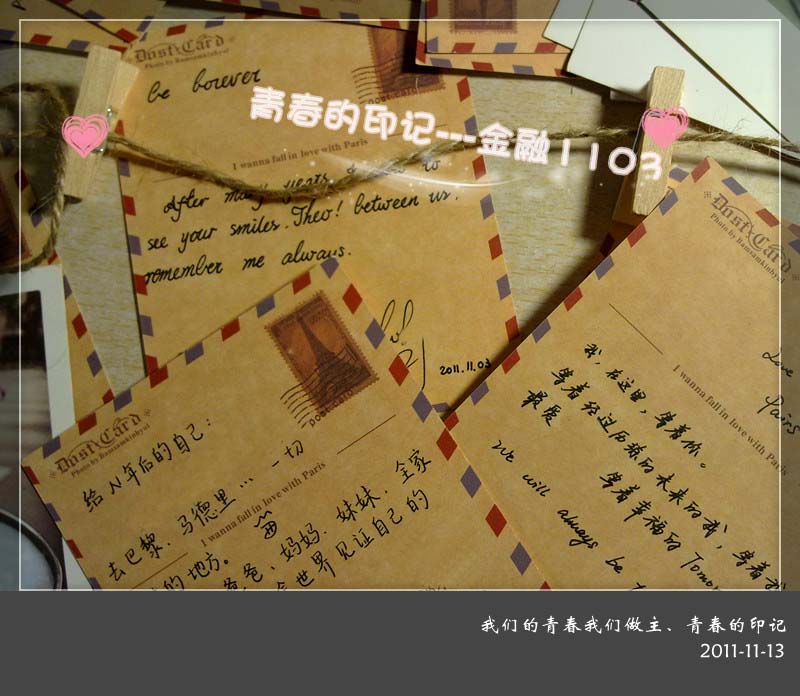 Post Card
Photo by Iamsamkinbyul
be borever
青春的印记---金融1103
I wanna fall in love with Paris
After many years to
see your smiles. Theo! between us.
remember me always.
2011.11.03
Post Card
Photo by Iamsamkinbyul
postcard
给N年后的自己:
I wanna fall in love with Paris
去巴黎、马德里… 一切
的地方。
爸爸、妈妈、妹妹,全家
世界见证自己的
Post Card
Photo by Iamsamkinbyul
I wanna fall in love with Paris
Love
Pairs
我,在这里,等着你。
等着经过历练的未来的我,等着我
最爱
等着幸福的 Tomor
We will always be
我们的青春我们做主、青春的印记
2011-11-13